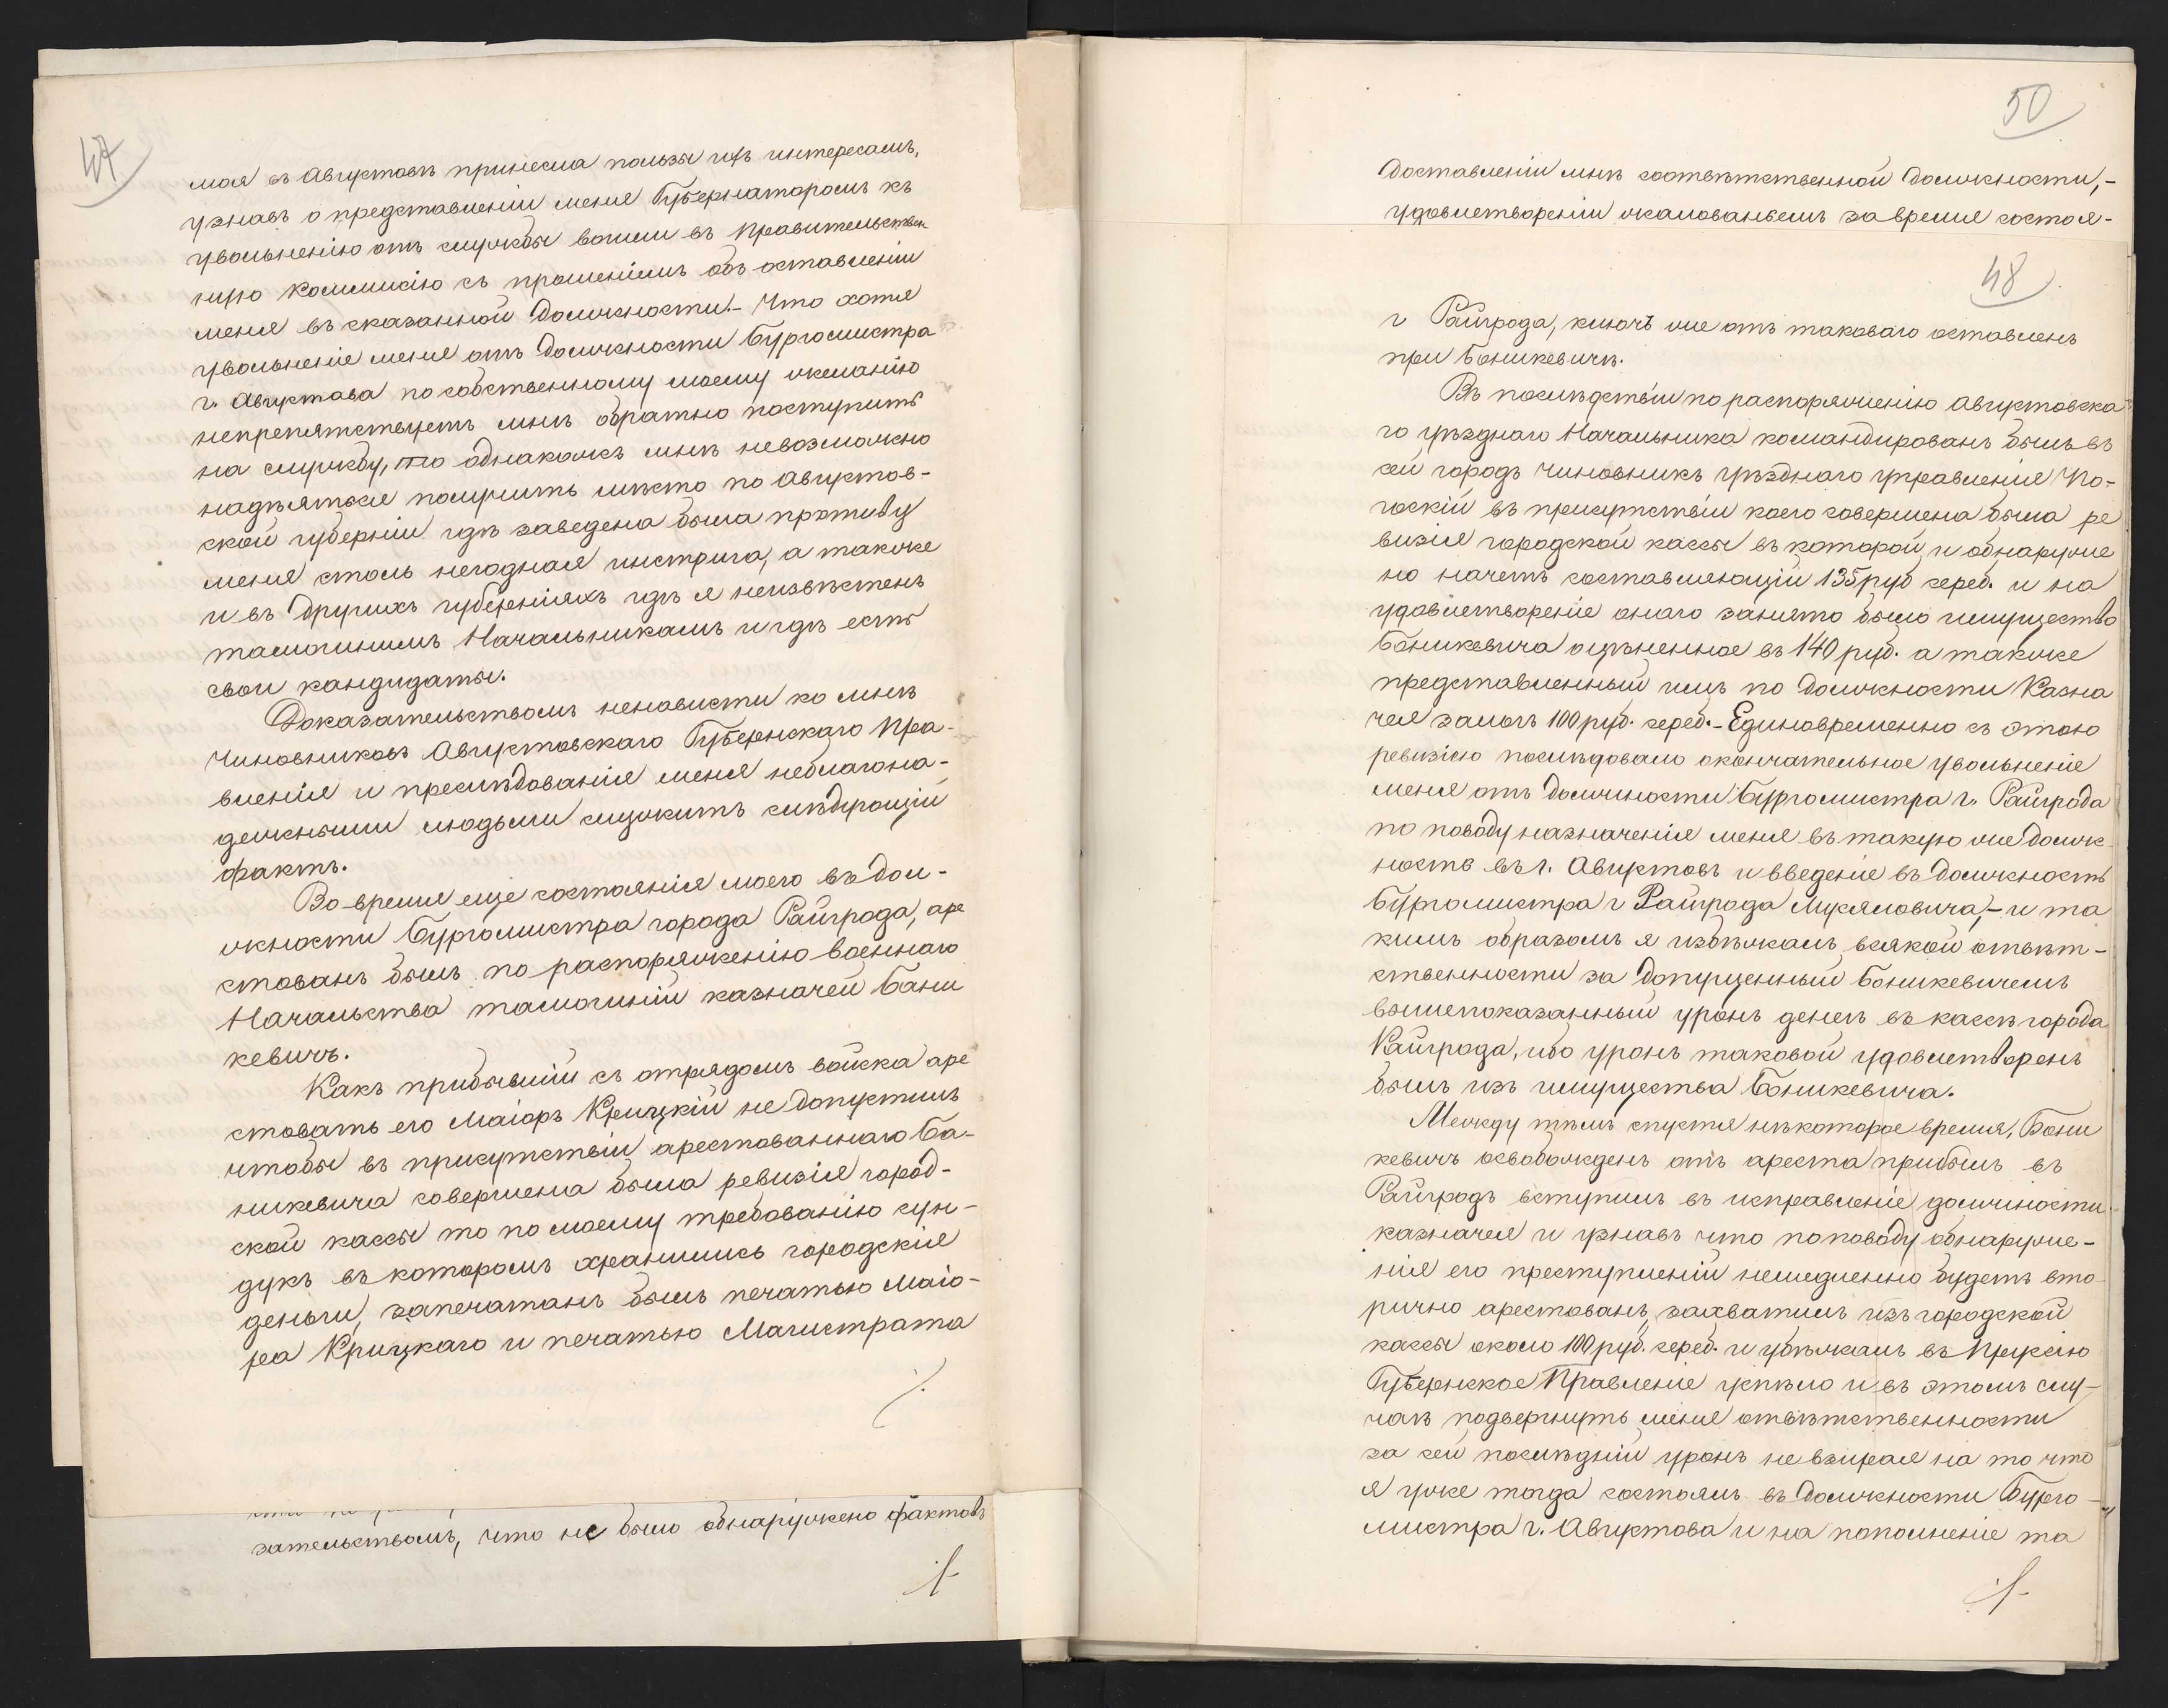 47
моя въ Августовѣ принесла пользы ихъ интересамъ,
узнавъ о представленіи меня Губернаторомъ къ
увольненію отъ службы вошли въ Правительствен
ную Коммисію съ прошеніемъ объ оставленіи
меня въ сказанной должности.- Что хотя
увольненіе меня отъ должности Бургомистра
г. Августова по собственному моему желанію
непрепятствуетъ мнѣ обратно поступить
на службу, то однакожъ мнѣ невозможно
надѣяться получить мѣсто по Августов-
ской губерніи гдѣ заведена была противу
меня столь негодная инстрига, а также
и въ другихъ губерніяхъ гдѣ я неизвѣстенъ
тамошнимъ Начальникамъ и гдѣ есть
свои кандидаты.
Доказательствомъ ненависти ко мнѣ
Чиновниковъ Августовскаго Губернскаго Пра-
вленія и преслѣдованія меня неблагона-
дежными людьми служитъ слѣдующій
фактъ.
Во время еще состоянія моего въ дол-
жности Бургомистра города Райгрода, аре
стованъ былъ по распоряженію военнаго
Начальства тамошній казначей Бони
кевичъ.
Какъ прибывшій съ отрядомъ войска аре
стовать его Маіоръ Крицкій не допустилъ
чтобы въ присутствіи арестованнаго Бо-
никевича совершена была ревизія город-
ской кассы то по моему требованію сун-
дукъ въ которомъ хранились городскія
деньги, запечатанъ былъ печатью Маіо-
ра Крицкаго и печатью Магистрата
зательствомъ, что не было обнаружено фактовъ
50
доставленіи мнѣ соотвѣтственной должности,-
удовлетвореніи жалованьемъ за время состоя-
48
г Райгрода, ключъ же отъ таковаго оставленъ
при Боникевичѣ.
Въ послѣдствіи по распоряженію Августовска
го уѣзднаго Начальника командированъ былъ въ
сей городъ Чиновникъ уѣзднаго управленія По-
госкій въ присутствіи коего совершена была ре
визія городской кассы въ которой и обнаруже
но начетъ составляющій 135 руб серб. и на
удовлетвореніе онаго занято было имущество
Боникевича оцѣненное въ 140 руб. а также
представленный имъ по должности Казна
чея залогъ 100 руб. сереб.- Единовременно съ этою
ревизіею послѣдовало окончательное увольненіе
меня отъ должности Бургомистра г. Райгрода
по поводу назначенія меня въ такую же долж
ность въ г. Августовъ и введеніе въ должность
Бургомистра г Райгрода Мусяловича,- и та
кимъ образомъ я избѣжалъ всякой отвѣт-
ственности за допущенный Боникевичемъ
вышепоказанный уронъ денегъ въ кассѣ города
Райгрода, ибо уронъ таковой удовлетворенъ
былъ изъ имущества Боникевича.
Между тѣмъ спустя нѣкоторое время, Бони
кевичъ освобожденъ отъ ареста прибылъ въ
Райгродъ вступилъ въ исправленіе должности
казначея и узнавъ что по поводу обнаруже-
нія его преступленій немедленно будетъ вто
рично арестованъ, захватилъ изъ городской
кассы около 100 руб. сереб. и убѣжалъ въ Пруссію
Губернское Правленіе успѣло и въ этомъ слу-
чаѣ подвергнуть меня отвѣтственности
за сей послѣдній уронъ не взирая на то что
я уже тогда состоялъ въ должности Бурго-
мистра г. Августова и на пополненіе та